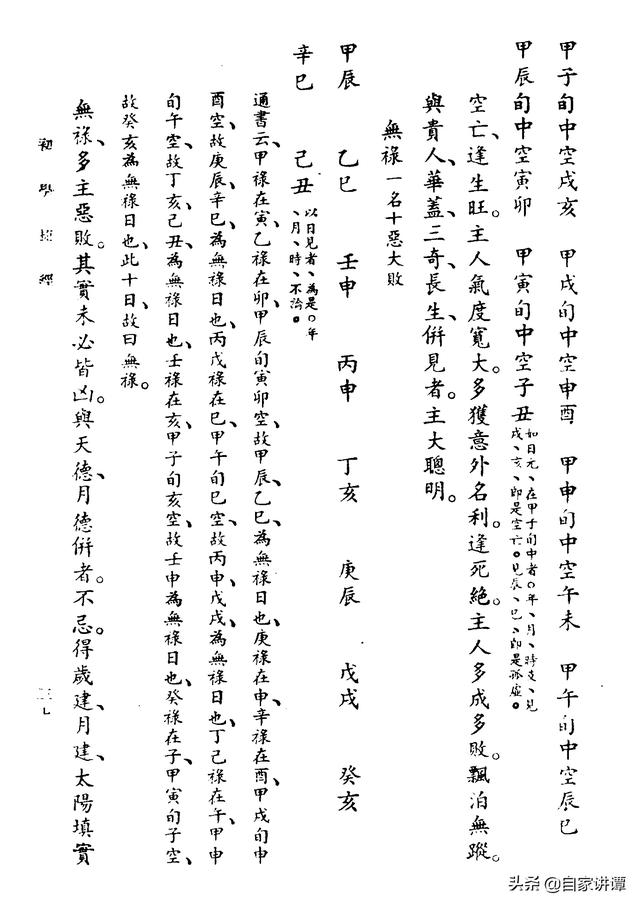 甲子旬中空戌亥　甲戌旬中空申酉　甲申旬中空午未　甲午旬中空辰巳
甲辰旬中空寅卯　甲寅旬中空子丑
如日元、在甲子旬中者。年、月、時支、見
戌、亥、即是空亡。見辰、巳、即是孤虛。
空亡、逢生旺。主人氣度寬大。多獲意外名利。逢死絕。主人多成多敗。飄泊無蹤。
與貴人、華蓋、三奇、長生、併見者。主大聰明。
無祿一名十惡大敗
甲辰　乙巳　壬申　丙申　丁亥　庚辰　戊戌　癸亥
辛巳　己丑
以日見者、為是。年
、月、時、不論。
通書云、甲祿在寅、乙祿在卯、甲辰旬寅卯空、故甲辰、乙巳、為無祿日也、庚祿在申、辛祿在酉、甲戌旬申
酉空、故庚辰、辛巳、為無祿日也、丙戊祿在巳、甲午旬巳空、故丙申、戊戌、為無祿日也、丁己祿在午、甲申
旬午空、故丁亥、己丑、為無祿日也、壬祿在亥、甲子旬亥空、故壬申為無祿日也、癸祿在子、甲寅旬子空、
故癸亥為無祿日也、此十日、故曰無祿。
無祿、多主惡敗。其實未必皆凶。與天德、月德併者。不忌。得歲建、月建、太陽填實
初學捷經
头条 @自家讲谭